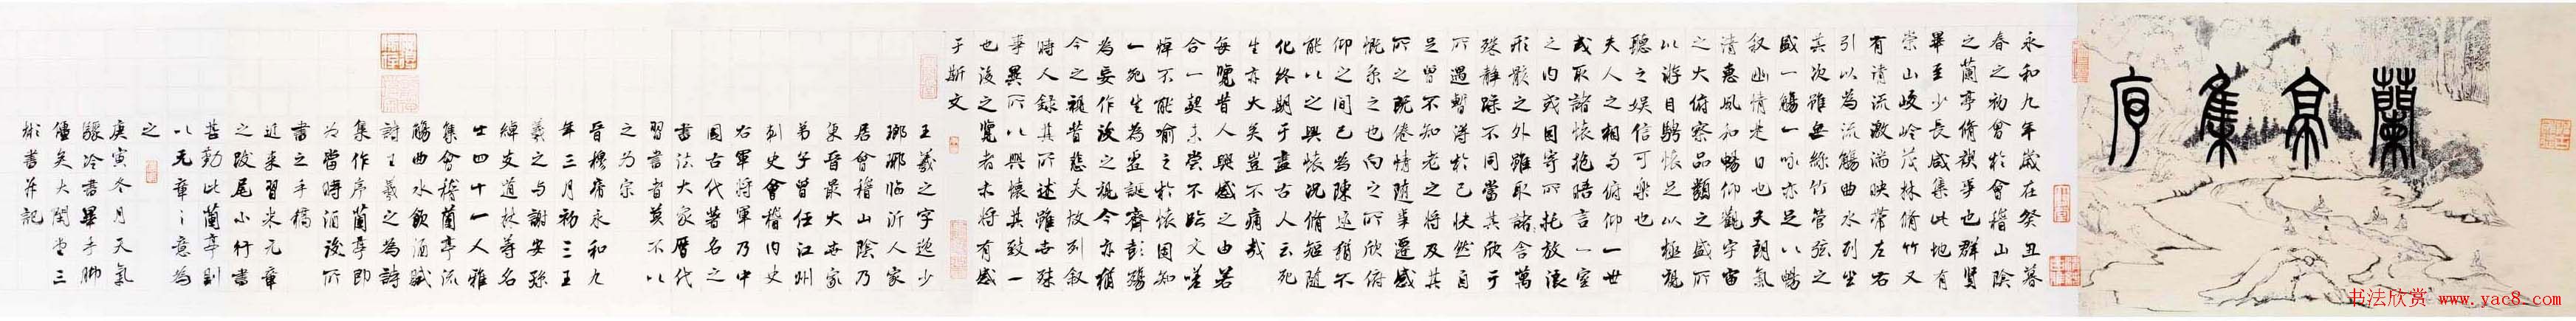 蘭亭集序
永和九年歲在癸丑暮
春之初會於會稽山陰
之蘭亭脩禊事也群賢
畢至少長咸集此地有
崇山峻岭茂林脩竹又
有清流激湍映帶左右
引以為流觴曲水列坐
其次雖無絲竹管弦之
盛一觴一咏亦足以暢
叙幽情是日也天朗氣
清惠風和暢仰觀宇宙
之大俯察品類之盛所
以游目騁懷足以極視
聽之娛信可樂也
夫人之相與俯仰一世
或取諸懷抱晤言一室
之内或因寄所托放浪
形骸之外雖取諸舍萬
殊靜躁不同當其欣于
所遇暫得於己快然自
足曾不知老之將及其
所之既倦情隨事遷感
慨系之也向之所欣俯
仰之間已為陳迹猶不
能以之興懷況脩短隨
化終期于盡古人云死
生亦大矣豈不痛哉
每覽昔人興感之由若
合一契未嘗不臨文嗟
悼不能喻之於懷固知
一死生為虛誕齊彭殤
為妄作後之視今亦猶
今之視昔悲夫故列叙
時人錄其所述雖世殊
事異所以興懷其致一
也後之覽者未將有感
于斯文
王羲之字逸少
瑯琊臨沂人家
居會稽山陰乃
東晉最大世家
弟子曾任江州
刺史會稽内史
右軍將軍乃中
國古代著名之
書法大家曆代
習書者莫不以
之為宗
晉穆帝永和九
年三月初三王
羲之与謝安孫
綽支道林等名
士四十一人雅
集會稽蘭亭流
觴曲水飲酒賦
詩王羲之為詩
集作序蘭亭即
為當時酒後所
書之手稿
近來習米元章
之跋尾小行書
甚勤此蘭亭則
以元章之意為
之
庚寅冬月天氣
驟冷書畢手腳
僵矣大閑堂三
彬書并記
书法欣赏 www.yac8.com